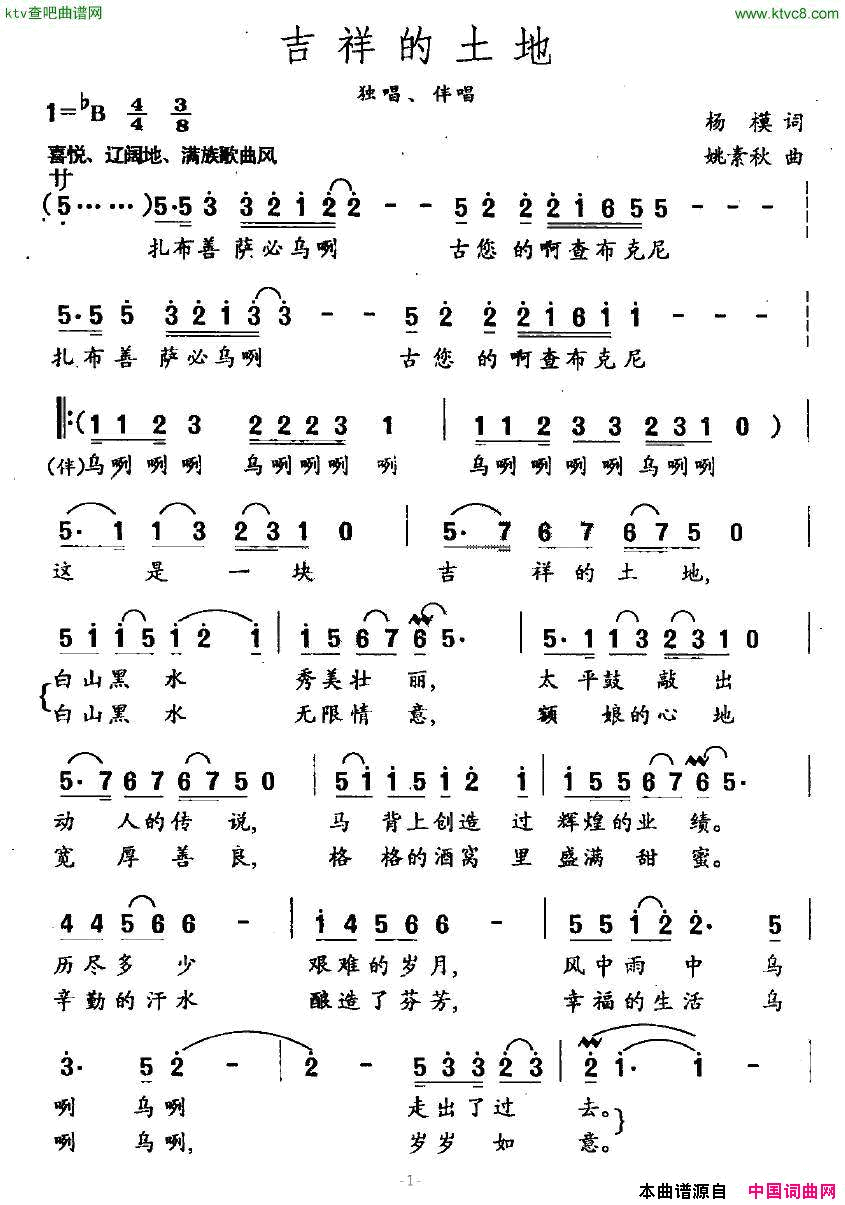 ktv查吧曲谱网
www.ktvc8.com
吉祥的土地
独唱、伴唱
1=♭B 4/4 3/8
杨 模 词
喜悦、辽阔地、满族歌曲风
姚素秋 曲
サ
(5······) 5·5 3 3 2 1 2 2 - - 5 2 2 2 1 6 5 5 - - -
扎布善 萨必乌咧 古您的啊查布克尼
5·5 5 3 2 1 3 3 - - 5 2 2 2 1 6 1 1 - - -
扎布善 萨必乌咧 古您的啊查布克尼
‖:(1 1 2 3 2 2 2 3 1 | 1 1 2 3 3 2 3 1 0 )|
(伴)乌咧咧咧 乌咧咧咧 咧 乌咧咧咧咧乌咧咧
5· 1 1 3 2 3 1 0 | 5· 7 6 7 6 7 5 0 |
这 是 一 块 吉 祥的土 地,
5 1 1 5 1 2 1 | 1 5 6 7 6 5· | 5· 1 1 3 2 3 1 0
白山黑 水 秀美壮 丽, 太 平鼓 敲 出
白山黑 水 无限情 意, 额 娘的心 地
5· 7 6 7 6 7 5 0 | 5 1 1 5 1 2 1 | 1 5 5 6 7 6 5·
动 人的传 说, 马 背上创造 过 辉煌的业 绩。
宽 厚善 良, 格 格的酒窝 里 盛满 甜 蜜。
4 4 5 6 6 - | 1 4 5 6 6 - | 5 5 1 2 2· 5
历尽多 少 艰难的岁月, 风中雨 中 乌
辛勤的汗水 酿造了芬芳, 幸福的生活 乌
3· 5 2 - | 2 - 5 3 3 2 3 | 2 1· 1 - |
咧 乌咧 走出了过 去。
咧 乌咧, 岁岁 如 意。
-1-
本曲谱源自 中国词曲网